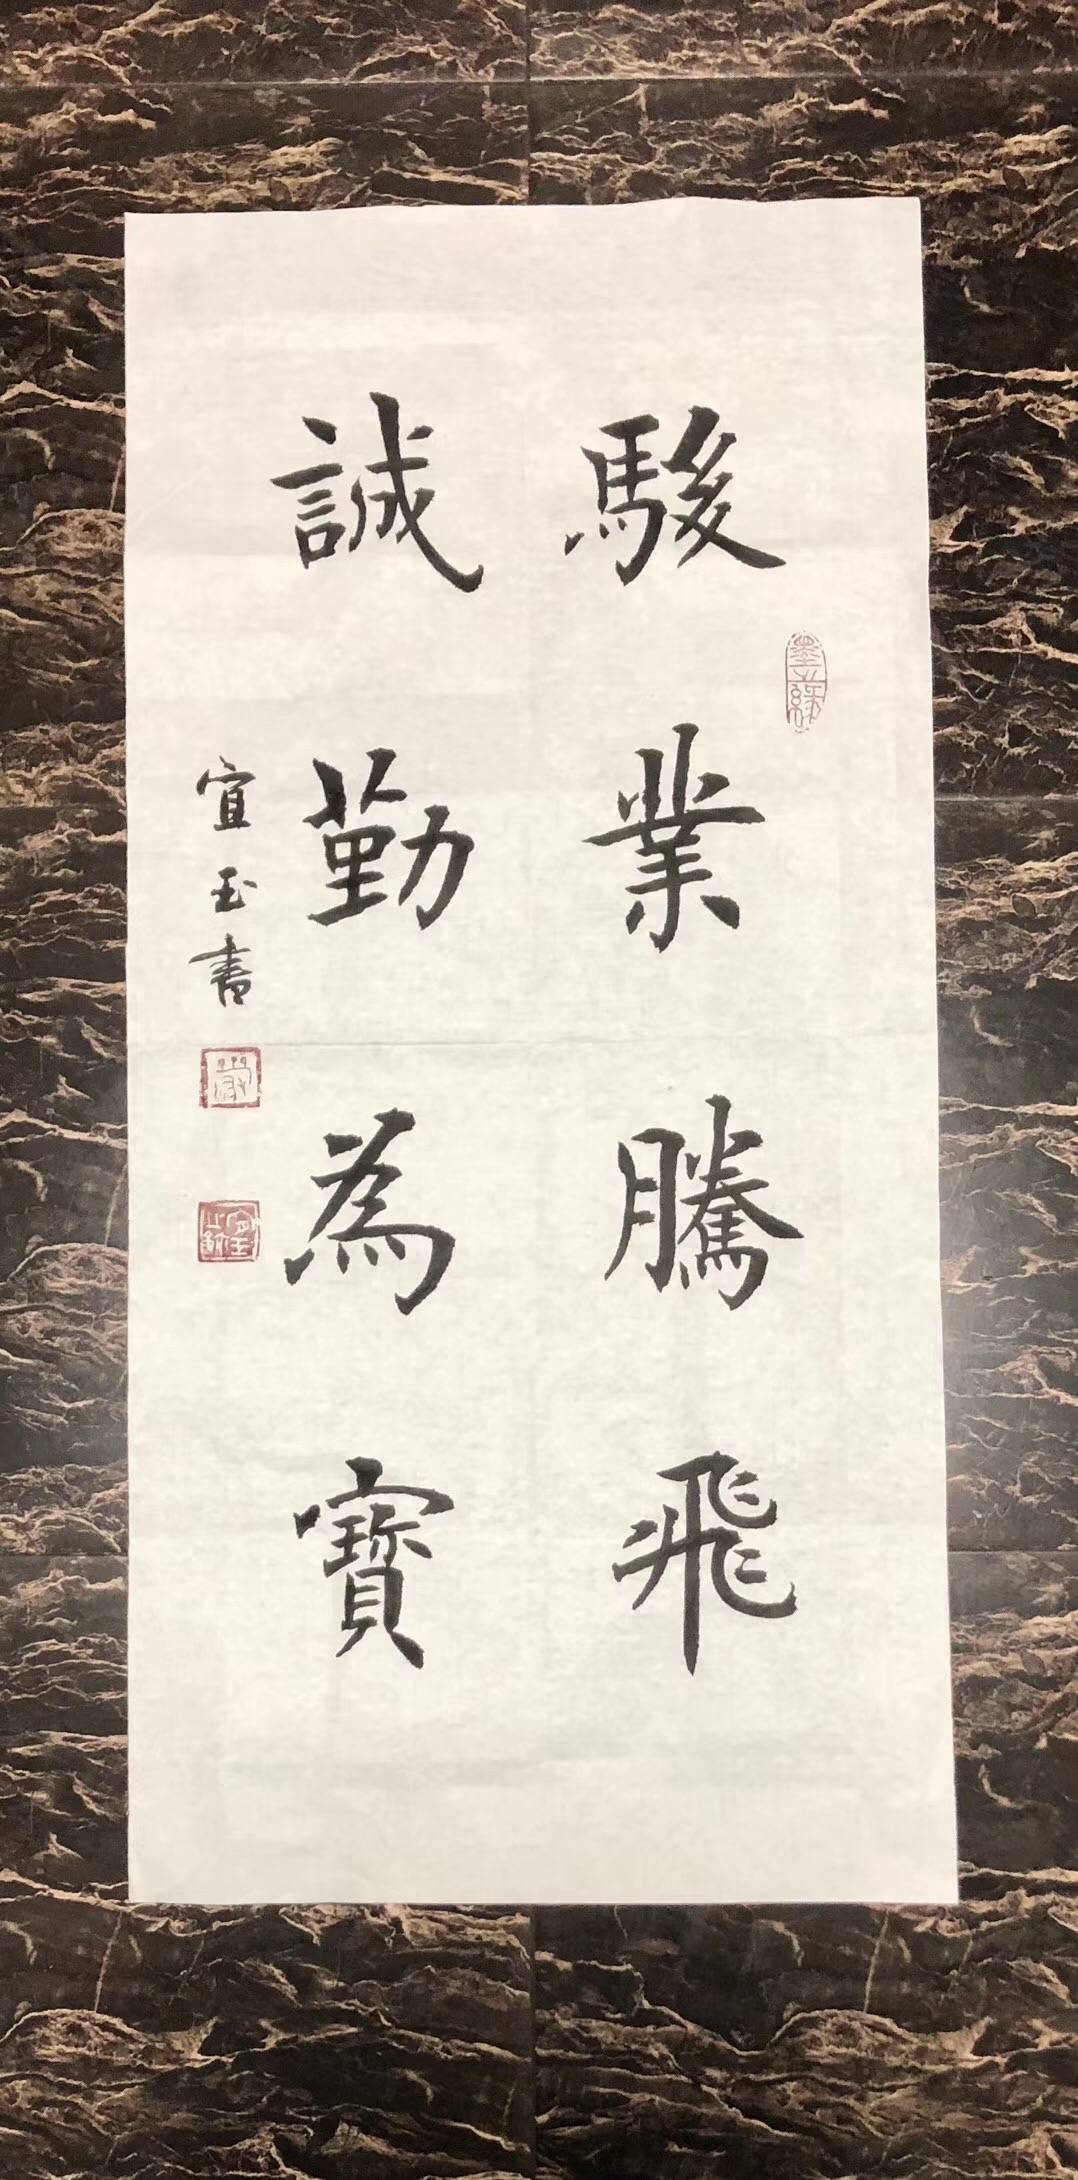 駿業騰飛
誠勤為寶
宜玉書
墨緣